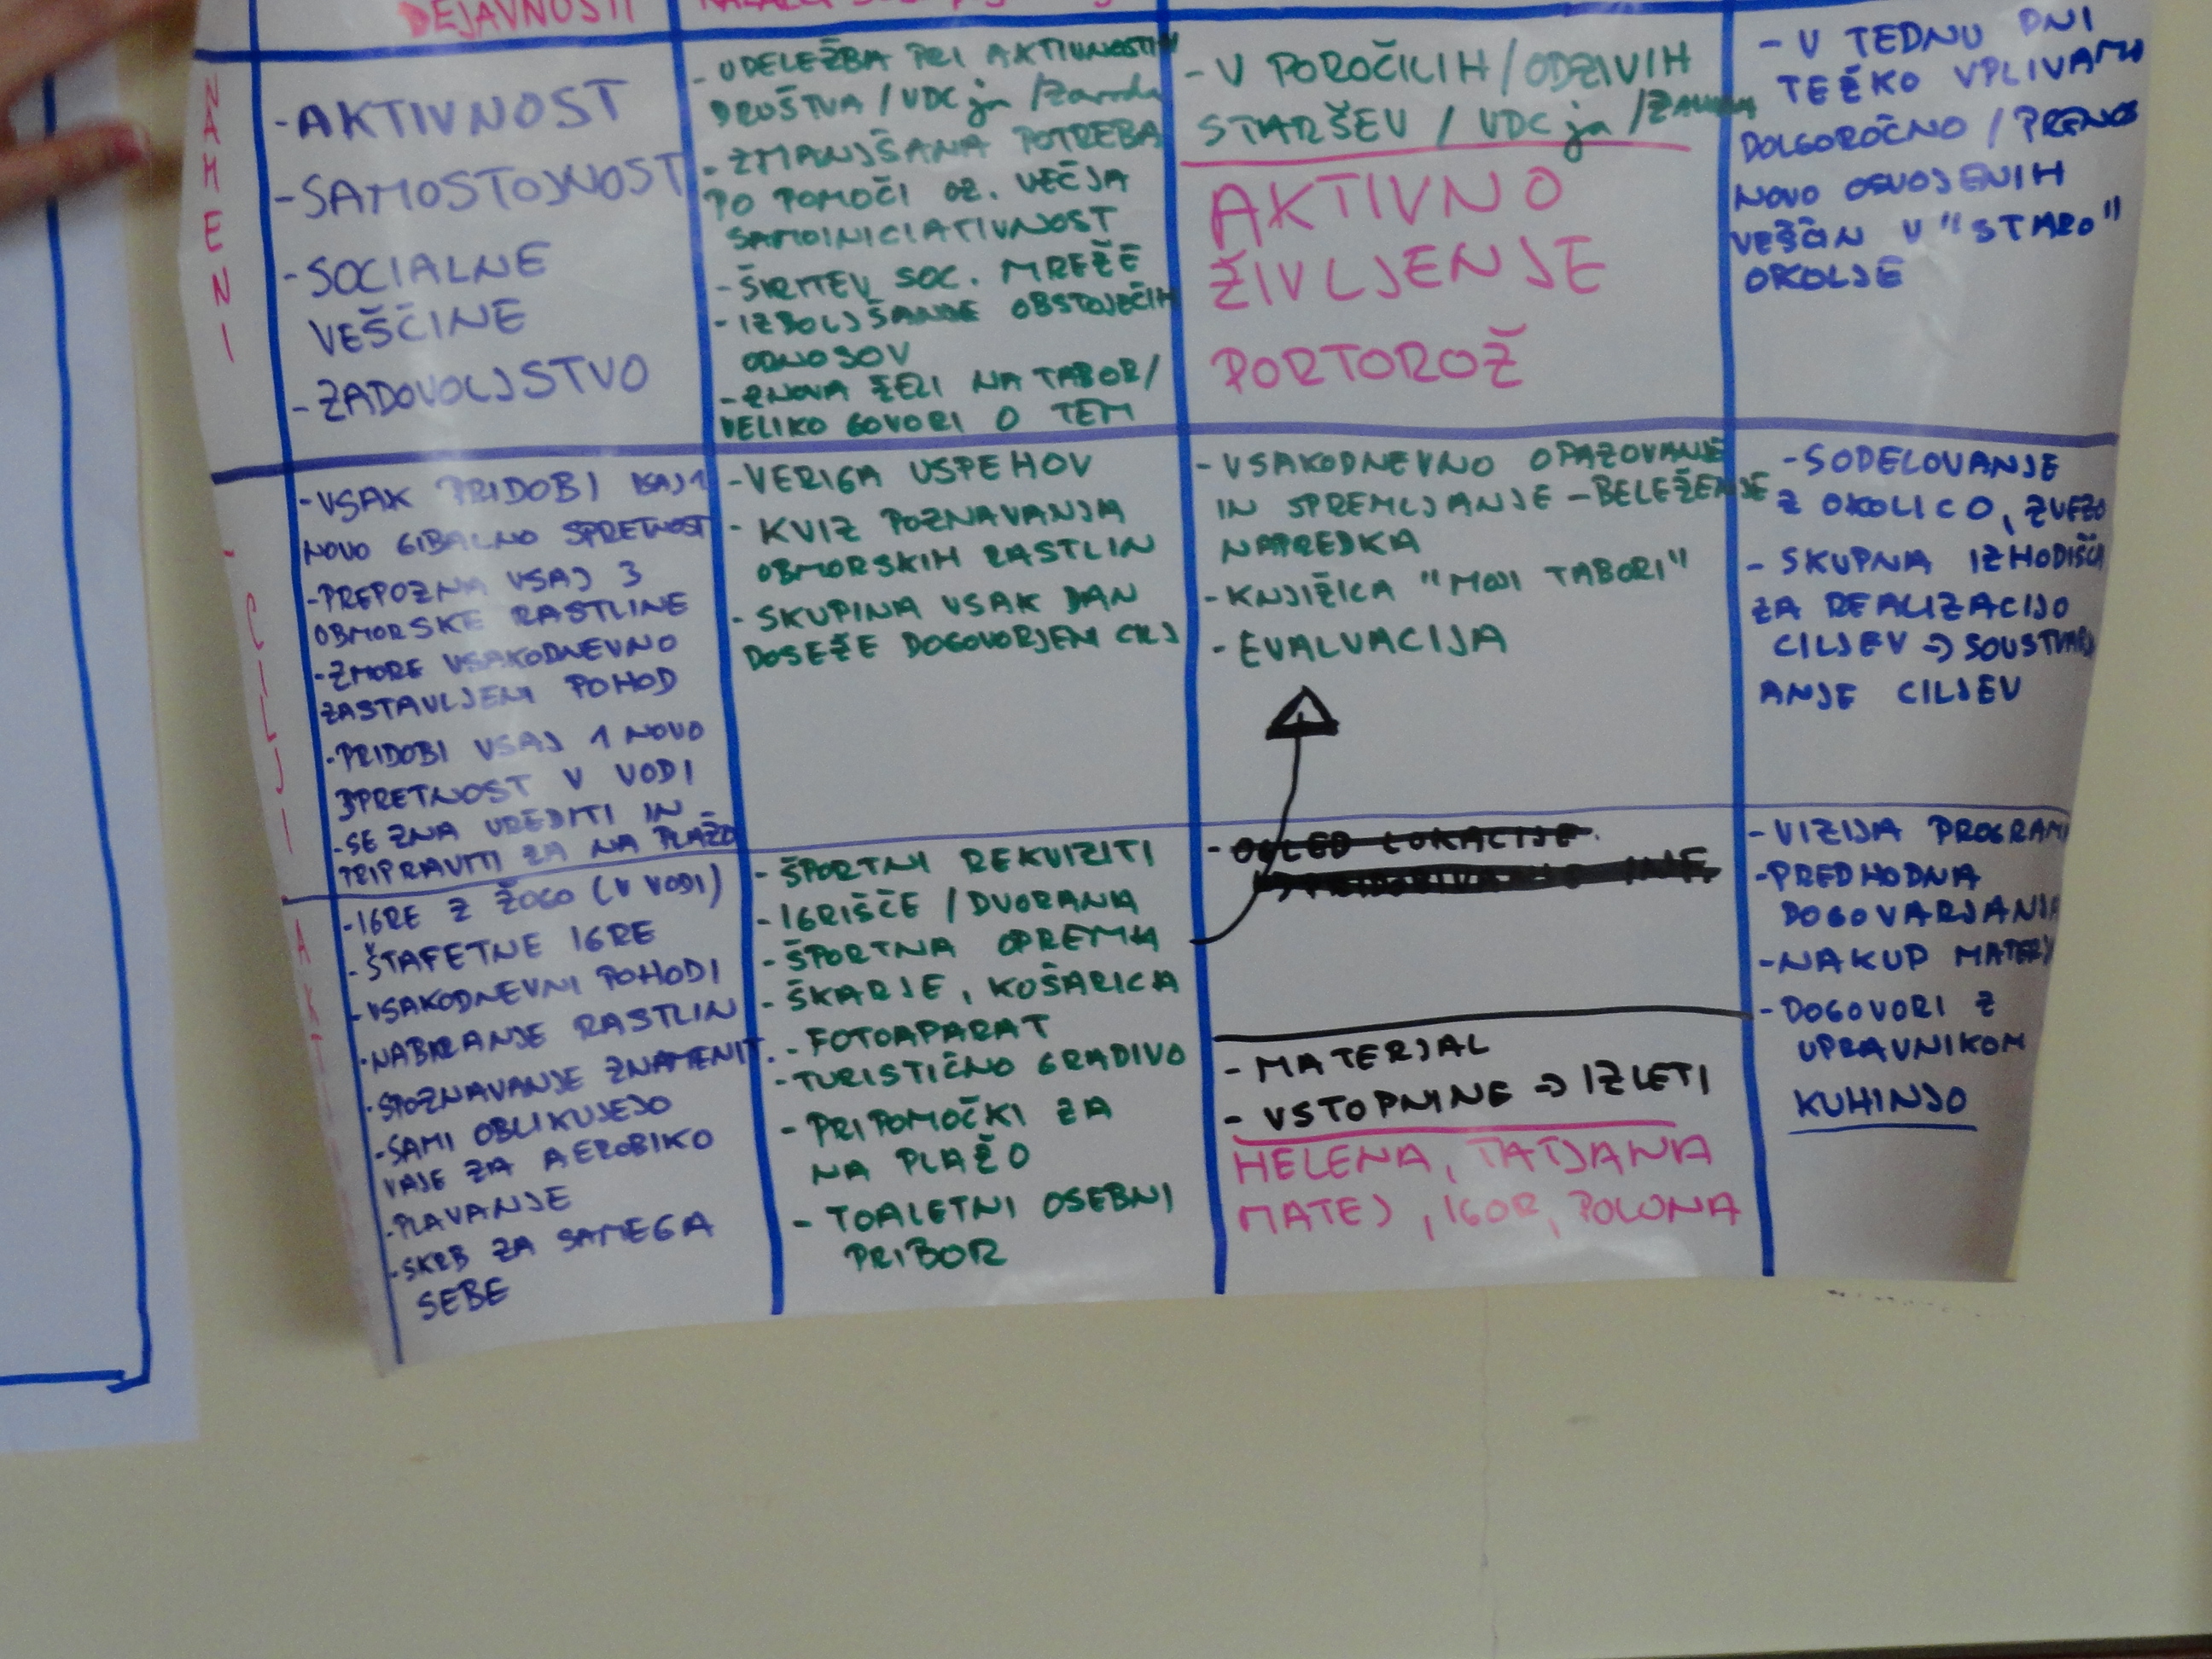 DEJAVNOSTI
NAMENI
- AKTIVNOST
- SAMOSTOJNOST
- SOCIALNE
VEŠČINE
- ZADOVOLJSTVO
- UDELEŽBA PRI AKTIVNOSTIH
DRUŠTVA / VDC ja / Zavoda
- ZMANJŠANA POTREBA
PO POMOČI OZ. VEČJA
SAMOINICIATIVNOST
- ŠIRITEV SOC. MREŽE
- IZBOLJŠANJE OBSTOJEČIH
ODNOSOV
- ZNOVA ŽELI NA TABOR/
VELIKO GOVORI O TEM
- V POROČILIH / ODZIVIH
STARŠEV / VDC ja / ZAVODA
AKTIVNO
ŽIVLJENJE
PORTOROŽ
- V TEDNU DNI
TEŽKO VPLIVAMO
DOLGOROČNO / PRENOS
NOVO OSVOJENIH
VEŠČIN V "STARO"
OKOLJE
CILJI
- VSAK PRIDOBI VSAJ 1
NOVO GIBALNO SPRETNOST
- PREPOZNA VSAJ 3
OBMORSKE RASTLINE
- ZMORE VSAKODNEVNO
ZASTAVLJENI POHOD
- PRIDOBI VSAJ 1 NOVO
SPRETNOST V VODI
- SE ZNA UREDITI IN
PRIPRAVITI ZA NA PLAŽO
- VERIGA USPEHOV
- KVIZ POZNAVANJA
OBMORSKIH RASTLIN
- SKUPINA VSAK DAN
DOSEŽE DOGOVORJENI CILJ
- VSAKODNEVNO OPAZOVANJE
IN SPREMLJANJE - BELEŽENJE
NAPREDKA
- KNJIŽICA "MOJI TABORI"
- EVALVACIJA
- SODELOVANJE
Z OKOLICO, ZVEZO
- SKUPNA IZHODIŠČA
ZA REALIZACIJO
CILJEV => SOUSTVARJ
ANJE CILJEV
AKT
- IGRE Z ŽOGO (V VODI)
- ŠTAFETNE IGRE
- VSAKODNEVNI POHODI
- NABIRANJE RASTLIN
- SPOZNAVANJE ZNAMENIT.
- SAMI OBLIKUJEJO
VAJE ZA AEROBIKO
- PLAVANJE
- SKRB ZA SAMEGA
SEBE
- ŠPORTNI REKVIZITI
- IGRIŠČE / DVORANA
- ŠPORTNA OPREMA
- ŠKARJE, KOŠARICA
- FOTOAPARAT
- TURISTIČNO GRADIVO
- PRIPOMOČKI ZA
NA PLAŽO
- TOALETNI OSEBNI
PRIBOR
- OGLED LOKACIJE
- MATERJAL
- VSTOPNINE => IZLETI
HELENA, TATJANA
MATEJ, IGOR, POLONA
- VIZIJA PROGRAMA
- PREDHODNA
DOGOVARJANJA
- NAKUP MATERJ
- DOGOVORI Z
UPRAVNIKOM
KUHINJO